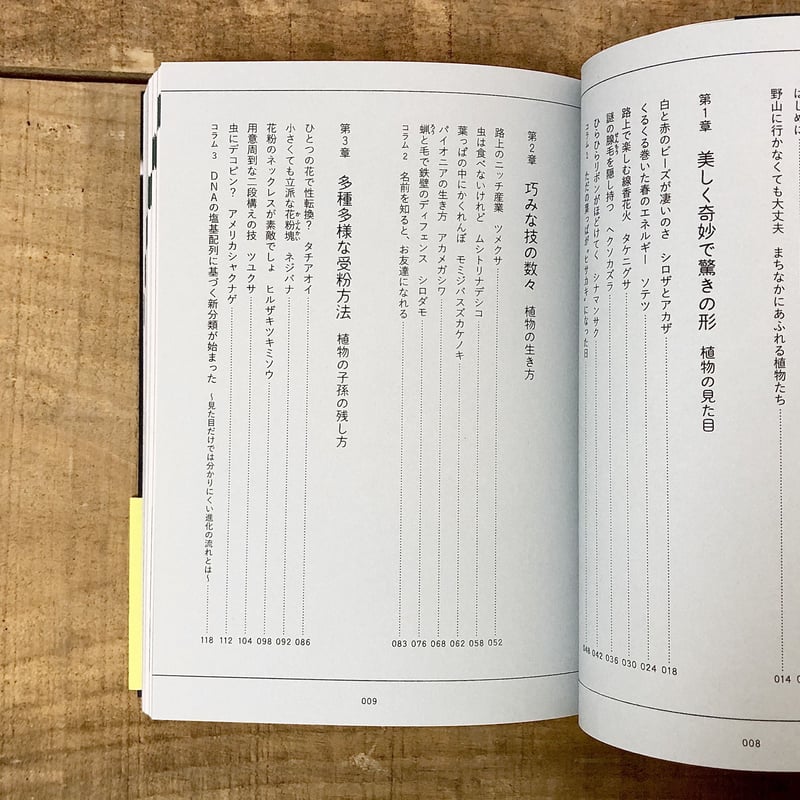 はじめに
野山に行かなくても大丈夫 まちなかにあふれる植物たち 014
第1章 美しく奇妙で驚きの形 植物の見た目
白と赤のビーズが凄いのさ シロザとアカザ 018
くるくる巻いた春のエネルギー ソテツ 024
路上で楽しむ線香花火 タケニグサ 030
謎の腺毛を隠し持つ ヘクソカズラ 036
ひらひらリボンがほどけてく シナマンサク 042
コラム1 ただの葉っぱが“ヒサカキ”になった日 048
008
第2章 巧みな技の数々 植物の生き方
路上のニッチ産業 ツメクサ 052
虫は食べないけれど ムシトリナデシコ 058
葉っぱの中にかくれんぼ モミジバスズカケノキ 062
パイオニアの生き方 アカメガシワ 068
蝋と毛で鉄壁のディフェンス シロダモ 076
コラム2 名前を知ると、お友達になれる 083
第3章 多種多様な受粉方法 植物の子孫の残し方
ひとつの花で性転換? タチアオイ 086
小さくても立派な花粉塊 ネジバナ 092
花粉のネックレスが素敵でしょ ヒルザキツキミソウ 098
用意周到な二段構えの技 ツユクサ 104
虫にデコピン? アメリカシャクナゲ 112
コラム3 DNAの塩基配列に基づく新分類が始まった 〜見た目だけでは分かりにくい進化の流れとは〜 118
009